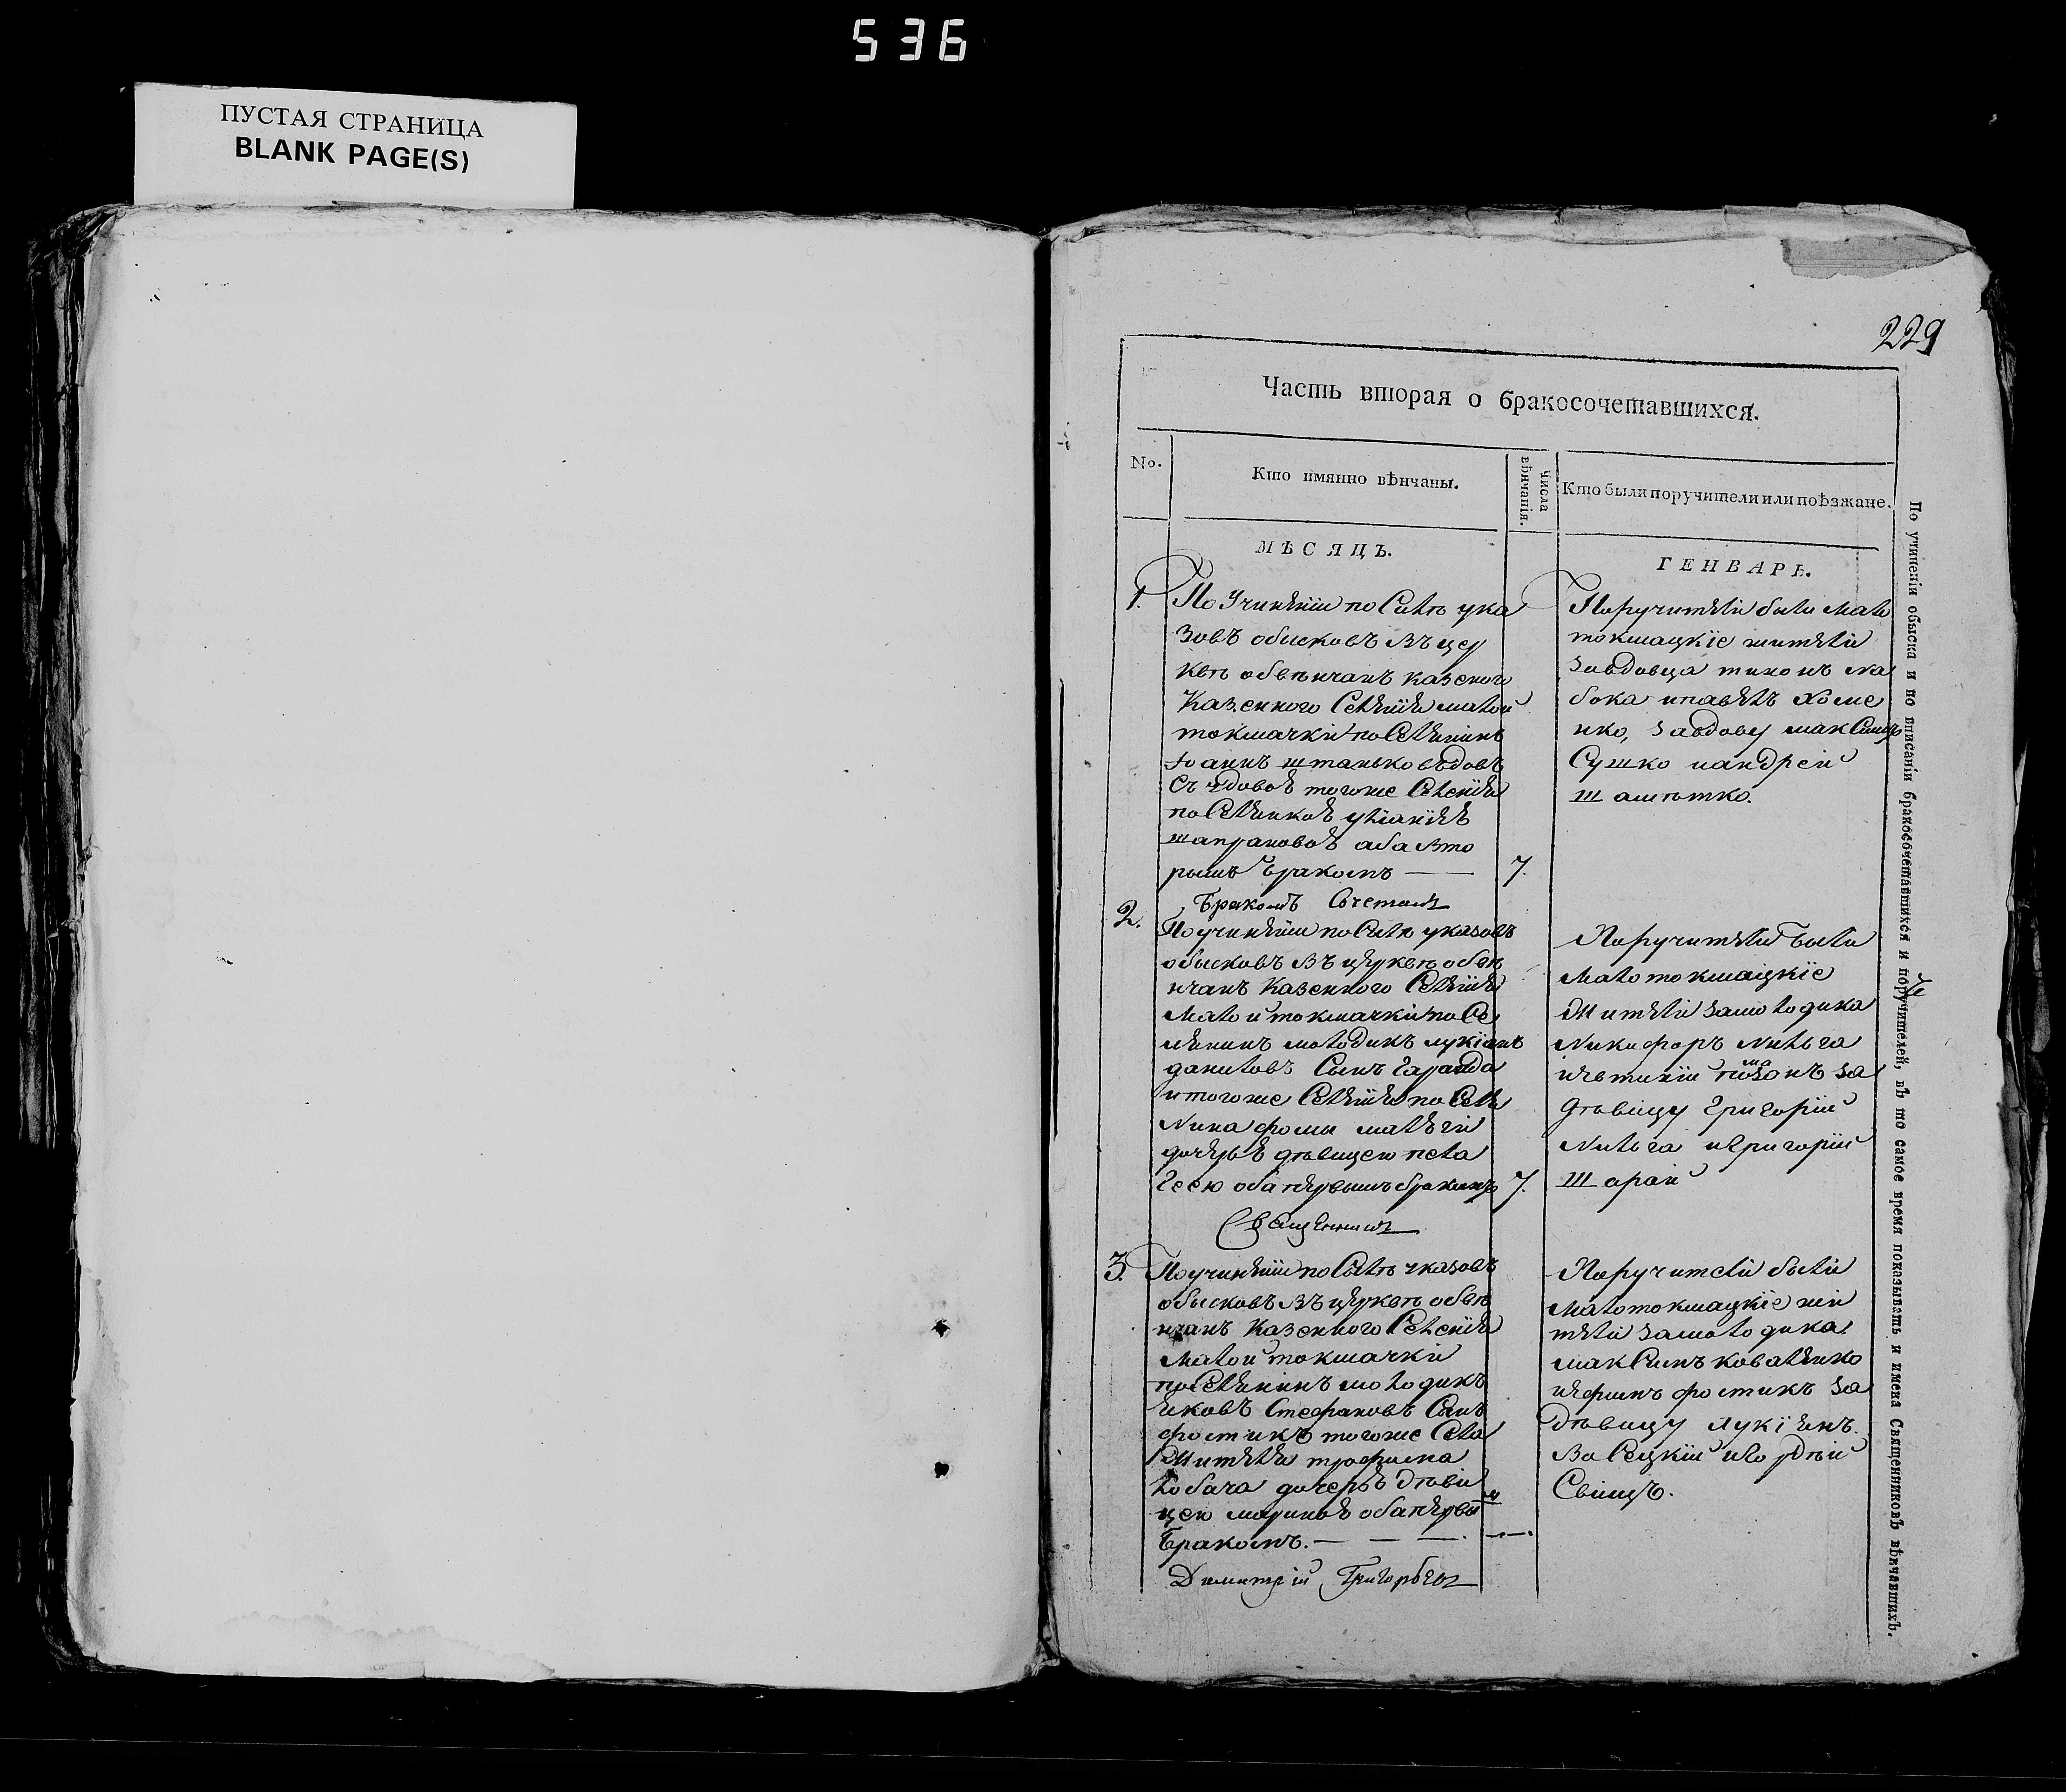 536
ПУСТАЯ СТРАНИЦА
BLANK PAGE(S)
229
Часть вторая о бракосочетавшихся.
No.
Кто имянно вѣнчаны.
Числа вѣнчанія.
Кто были поручители или поѣзжане.
МѢСЯЦЪ.
ГЕНВАРЬ.
1.
По Учиненіи по Силѣ ука
зовъ обысковъ въ цер
квѣ обвѣнчанъ казеного
Казенного Селенія малой
токмачки поселянинъ
Іоаннъ штанько вдовъ
съ вдовой тогоже Селенія
поселянкой уліаніей
шапрановой оба вто
рымъ бракомъ
7.
Поручители были мало
токмацкіе жители
за вдовца тихонъ на
бока и павелъ хоме
нко, за вдову максимъ
Сушко и андрей
шаметко.
2.
Бракомъ Сочеталъ
По учиненіи по Силѣ указовъ
обысковъ въ церквѣ обвѣ
нчанъ Казенного Селенія
Малой токмачки посе
лянинъ молодикъ лукіанъ
даниловъ Сынъ Гаранда
и тогоже Селенія поселя
нина фомы
дочерью дѣвицею пела
геею оба первымъ бракомъ
7.
Поручители были
Мало токмацкіе
жители за молодика
Никифоръ
за
дѣвицу григорій
и григорій
шарай
Священникъ
3.
По учиненіи по Силѣ указовъ
обысковъ въ церквѣ обвѣ
нчанъ Казенного Селенія
Малой токмачки
поселянинъ молодикъ
яковъ Стефановъ Сынъ
фостикъ тогоже Села
жителя трофима
лобача дочерью дѣви
цею мариной оба первым
бракомъ.
Поручители были
Малотокмацкіе жи
тели за молодика
максимъ коваленко
и ефимъ фостикъ за
дѣвицу лукіянъ
Засецкій и Гордѣй
Свинцъ.
Димитрій Григорьевъ
По учиненіи обыска и по вписаніи бракосочетавшихся и поручителей, въ то самое время показывать и имена Священниковъ вѣнчавшихъ.